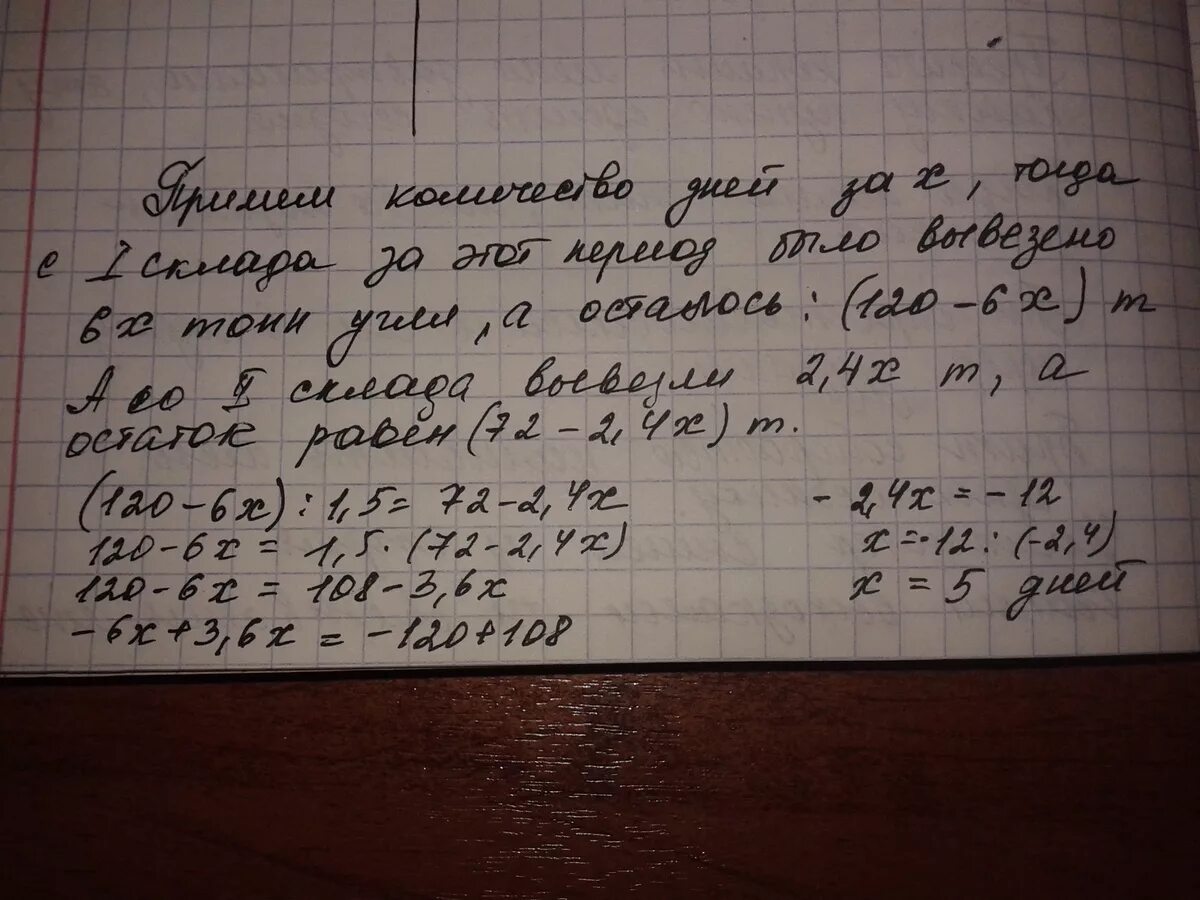 Примем количество дней за x, тогда
с I склада за этот период было вывезено
6x тонн угля, а осталось: (120 - 6x) т
А со II склада вывезли 2,4x т, а
остаток равен (72 - 2,4x) т.
(120 - 6x) : 1,5 = 72 - 2,4x
120 - 6x = 1,5 · (72 - 2,4x)
120 - 6x = 108 - 3,6x
- 6x + 3,6x = - 120 + 108
- 2,4x = - 12
x = -12 : (-2,4)
x = 5 дней